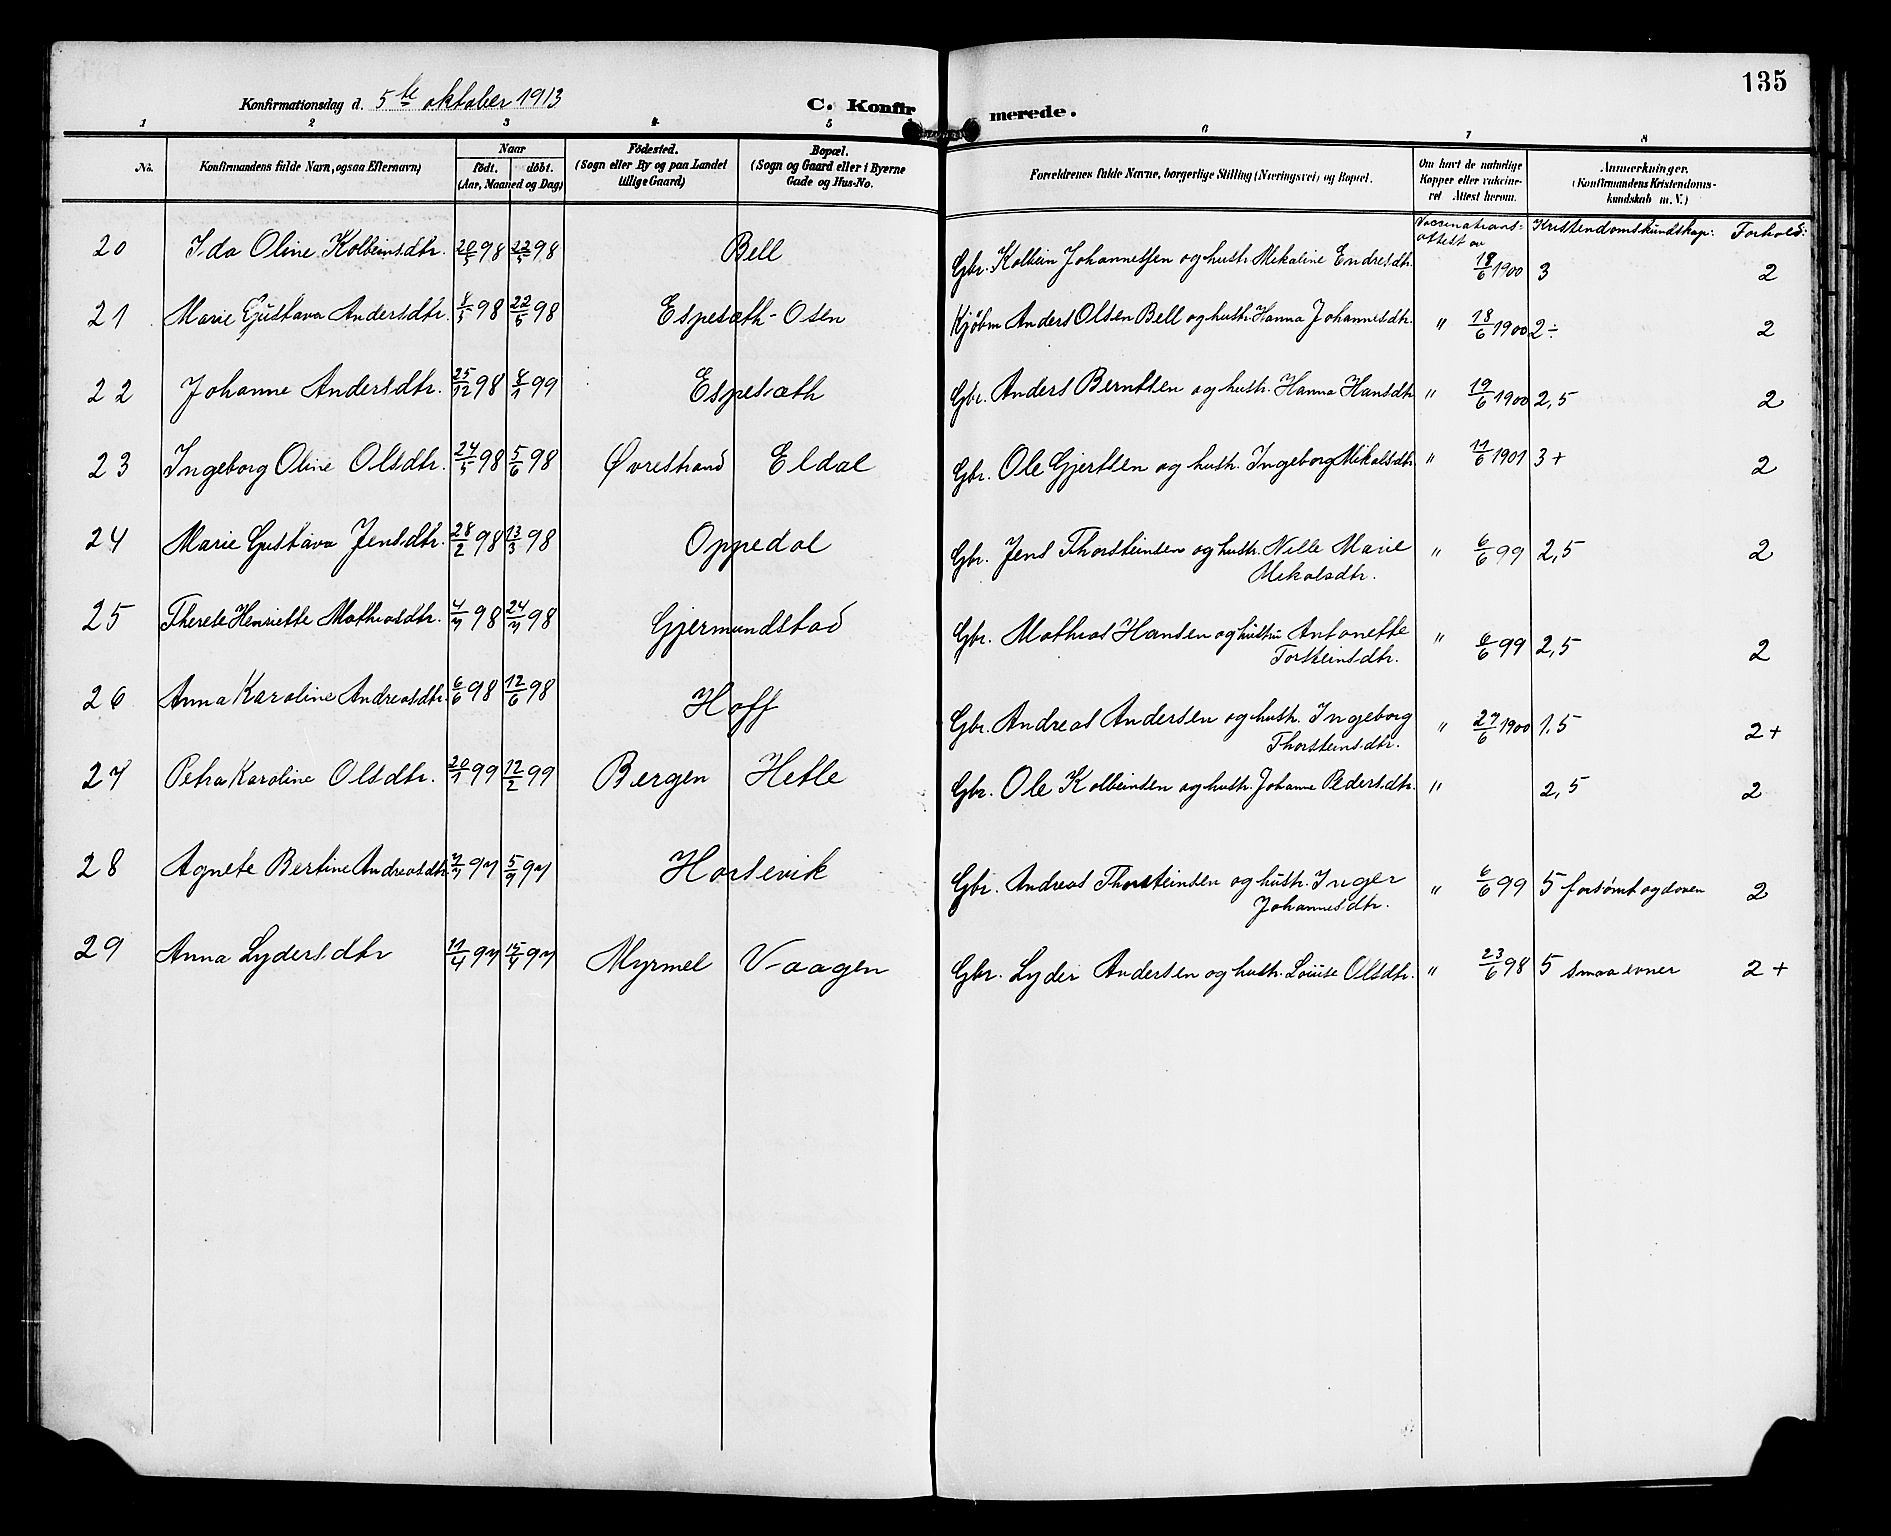 135
Konfirmationsdag d. 5te oktober 1913 C. Konfirmerede.
1 2 3 4 5 6 7 8
No. Konfirmandens fulde Navn, ogsaa Efternavn) Naar födt. döbt. (Aar, Maaned og Dag) Födested. (Sogn eller By og paa Landet tillige Gaard) Bopæl. (Sogn og Gaard eller i Byerne Gade og Hus-No. Forældrenes fulde Navne, borgerlige Stilling (Næringsvei) og Bopæl. Om havt de naturlige Kopper eller vakcineret Attest herom. Anmærkninger. (Konfirmandens Kristendomskundskab m. V.)
Vaccinationsattest av Kristendomskundskap: Forhold:
20 Ida Oline Kolbeinsdtr. 20/5 98 22/5 98 Bell Gbr. Kolbein Johannessen og hustr. Mikaline Endresdtr. 18/6 1900 3 2
21 Marie Gustava Andersdtr. 8/5 98 22/5 98 Espesæth-Osen Kjøbm Anders Olsen Bell og hustr. Hanna Johannesdtr. " 18/6 1900 2÷ 2
22 Johanne Andersdtr. 25/12 98 8/1 99 Espesæth Gbr. Anders Berntsen og hustr. Hanna Hansdtr " 19/6 1900 2,5 2
23 Ingeborg Oline Olsdtr. 24/5 98 5/6 98 Øvrestrand Eldal Gbr. Ole Gjertsen og hustr. Ingeborg Mikalsdtr. " 11/6 1901 3+ 2
24 Marie Gustava Jensdtr. 28/2 98 13/3 98 Oppedal Gbr. Jens Thorsteinsen og hustr. Nille Marie Mikalsdtr. " 6/6 99 2,5 2
25 Therese Henriette Mathiasdtr. 4/7 98 24/7 98 Gjermundstad Gbr. Mathias Hansen og hustru Antonette Torsteinsdtr. " 6/6 99 2,5 2
26 Anna Karoline Andreasdtr. 6/6 98 12/6 98 Hoff Gbr. Andreas Andersen og hustr. Ingeborg Thorsteinsdtr. " 27/6 1900 1,5 2+
27 Petra Karoline Olsdtr. 20/1 99 12/2 99 Bergen Hetle Gbr. Ole Kolbeinsen og hustr. Johanne Pedersdtr. " 2,5 2
28 Agnete Bertine Andreasdtr. 7/7 97 5/9 97 Horsevik Gbr. Andreas Thorsteinsen og hustr. Inger Johannesdtr. " 6/6 99 5 forsømt og doven 2
29 Anna Lydersdtr 11/4 97 15/4 97 Myrmel Vaagen Gbr. Lyder Andersen og hustr. Louise Olsdtr. " 23/6 98 5 smaa evner 2+